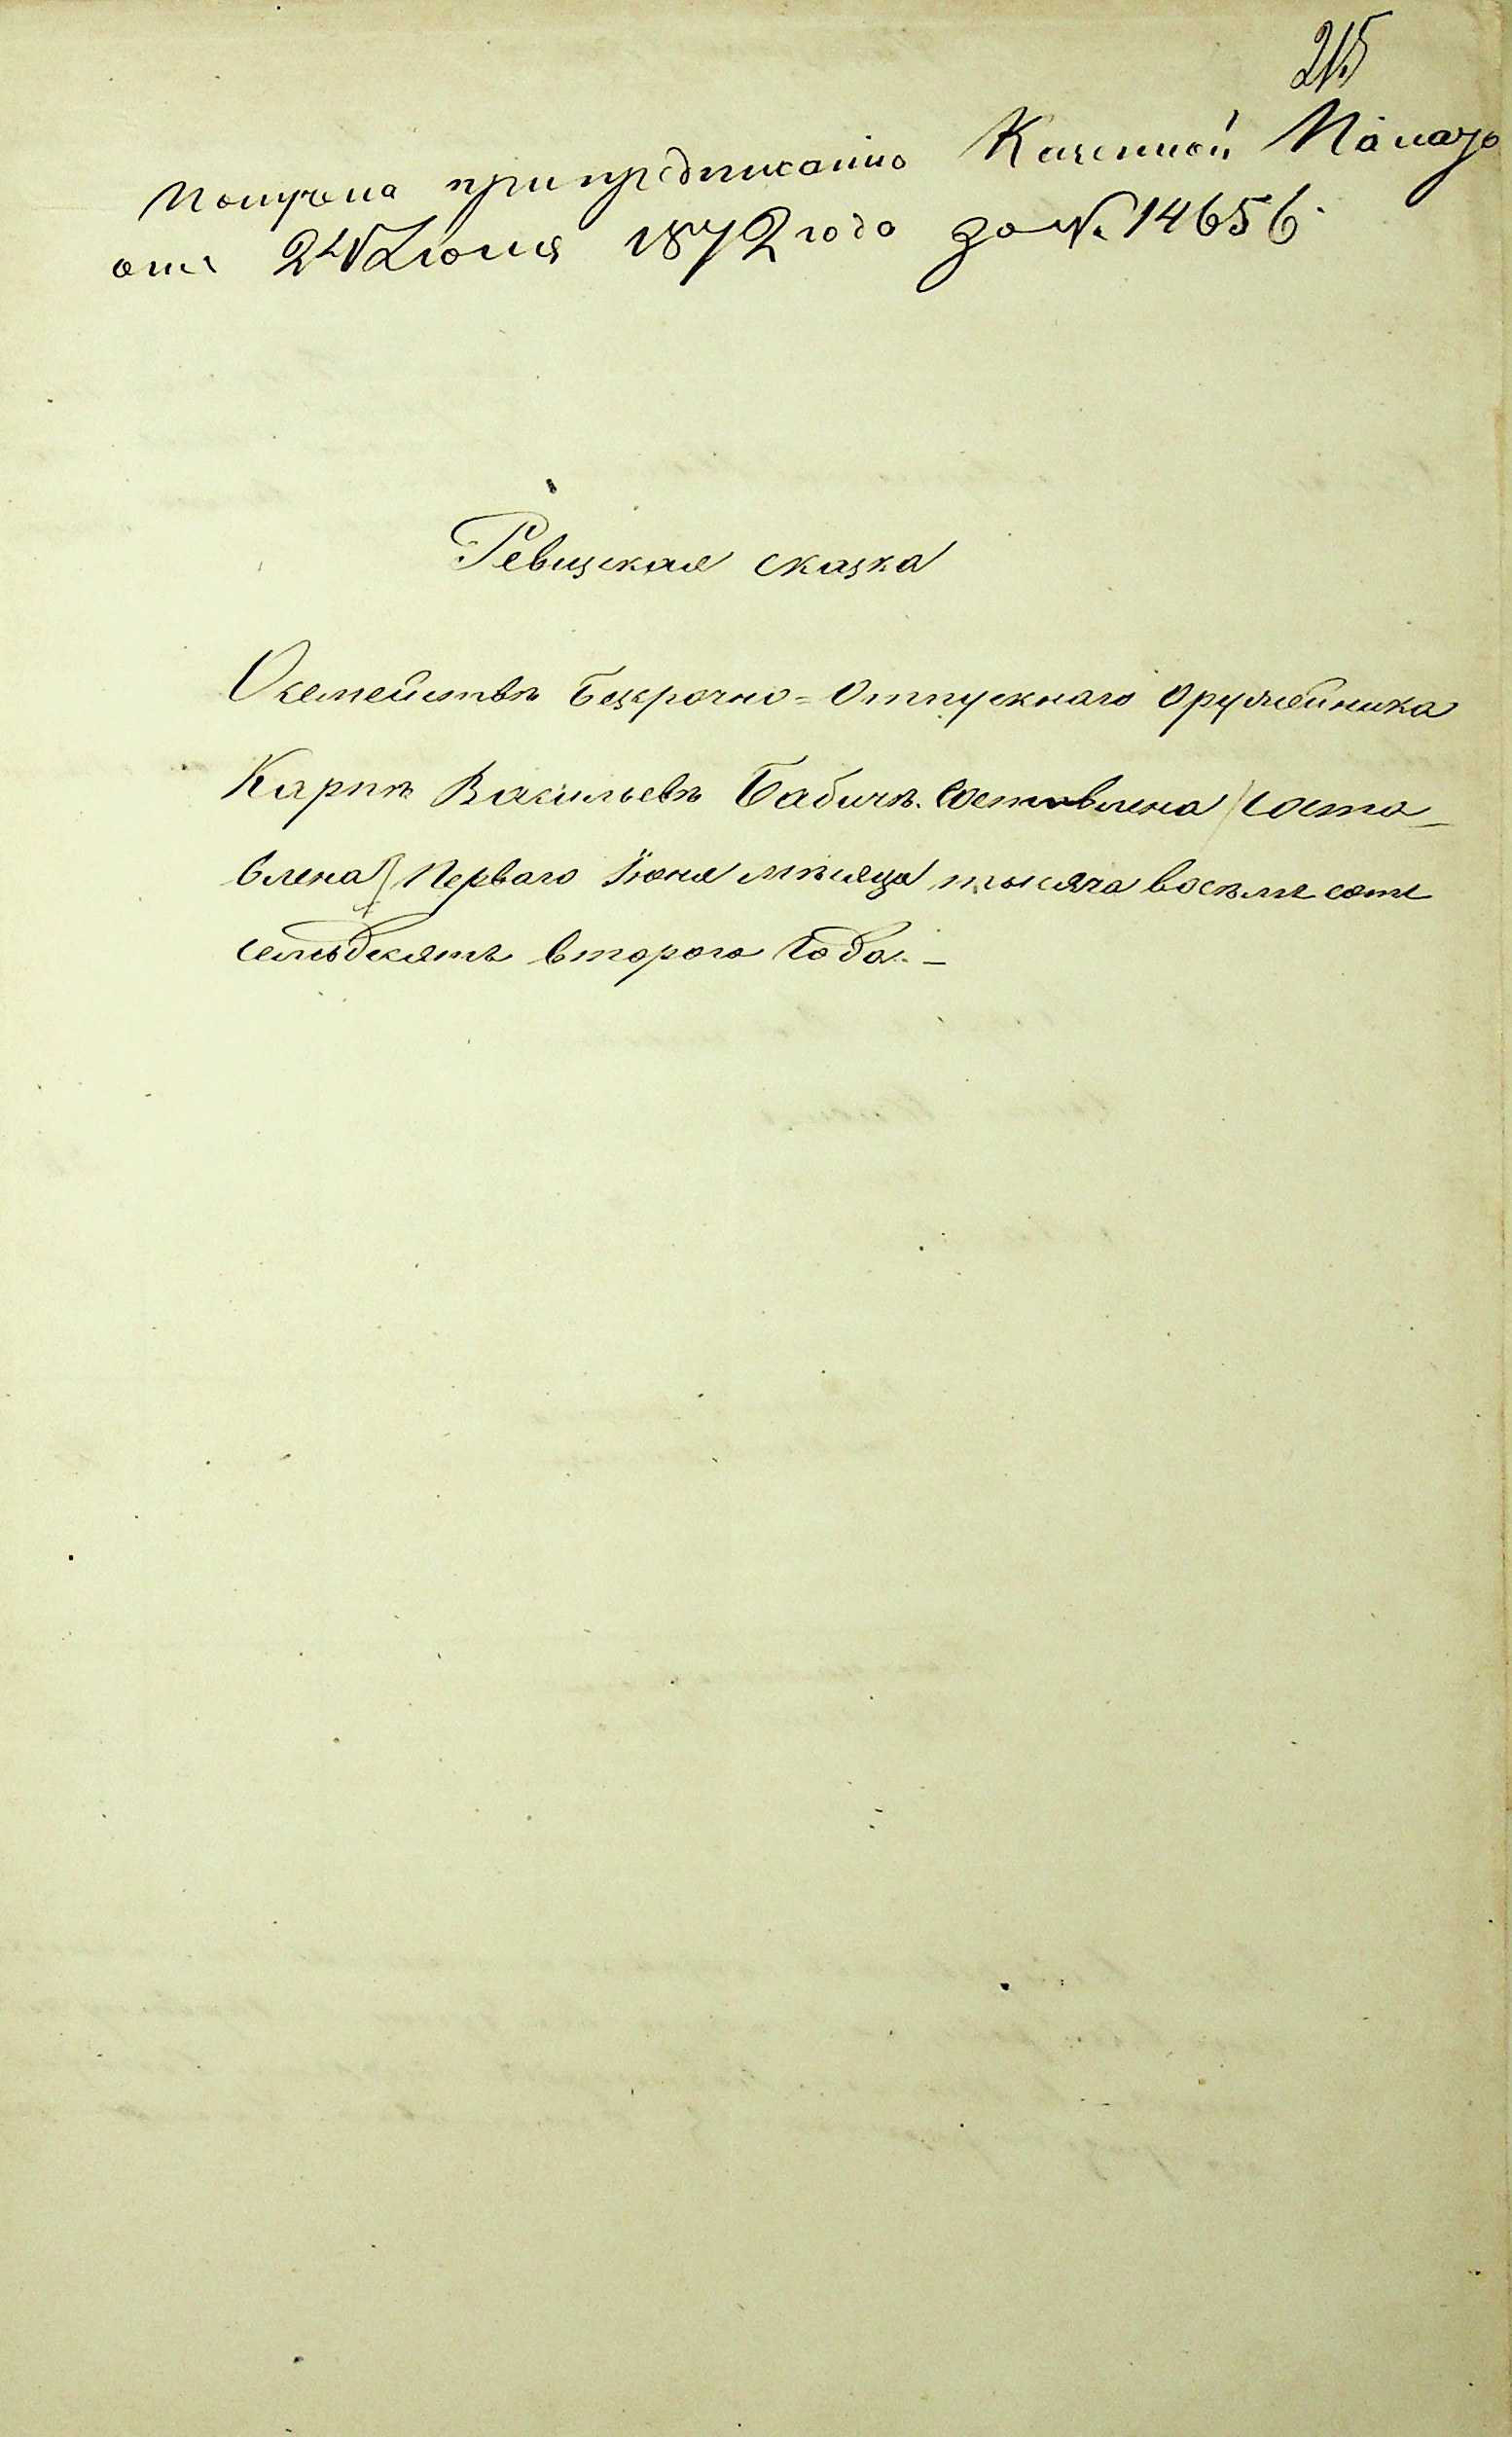 215
Получена при предписанію Казенной Палаты
отъ 24 Іюня 1872 года за №. 14656.
Ревизская сказка
О семействѣ безсрочно=отпускнаго оружейника
Карпѣ Васильевѣ Бабичѣ. Составлена (соста-
влена) Перваго Іюня мѣсяца тысяча восѣмъ сотъ
семьдесятъ втораго Года. –